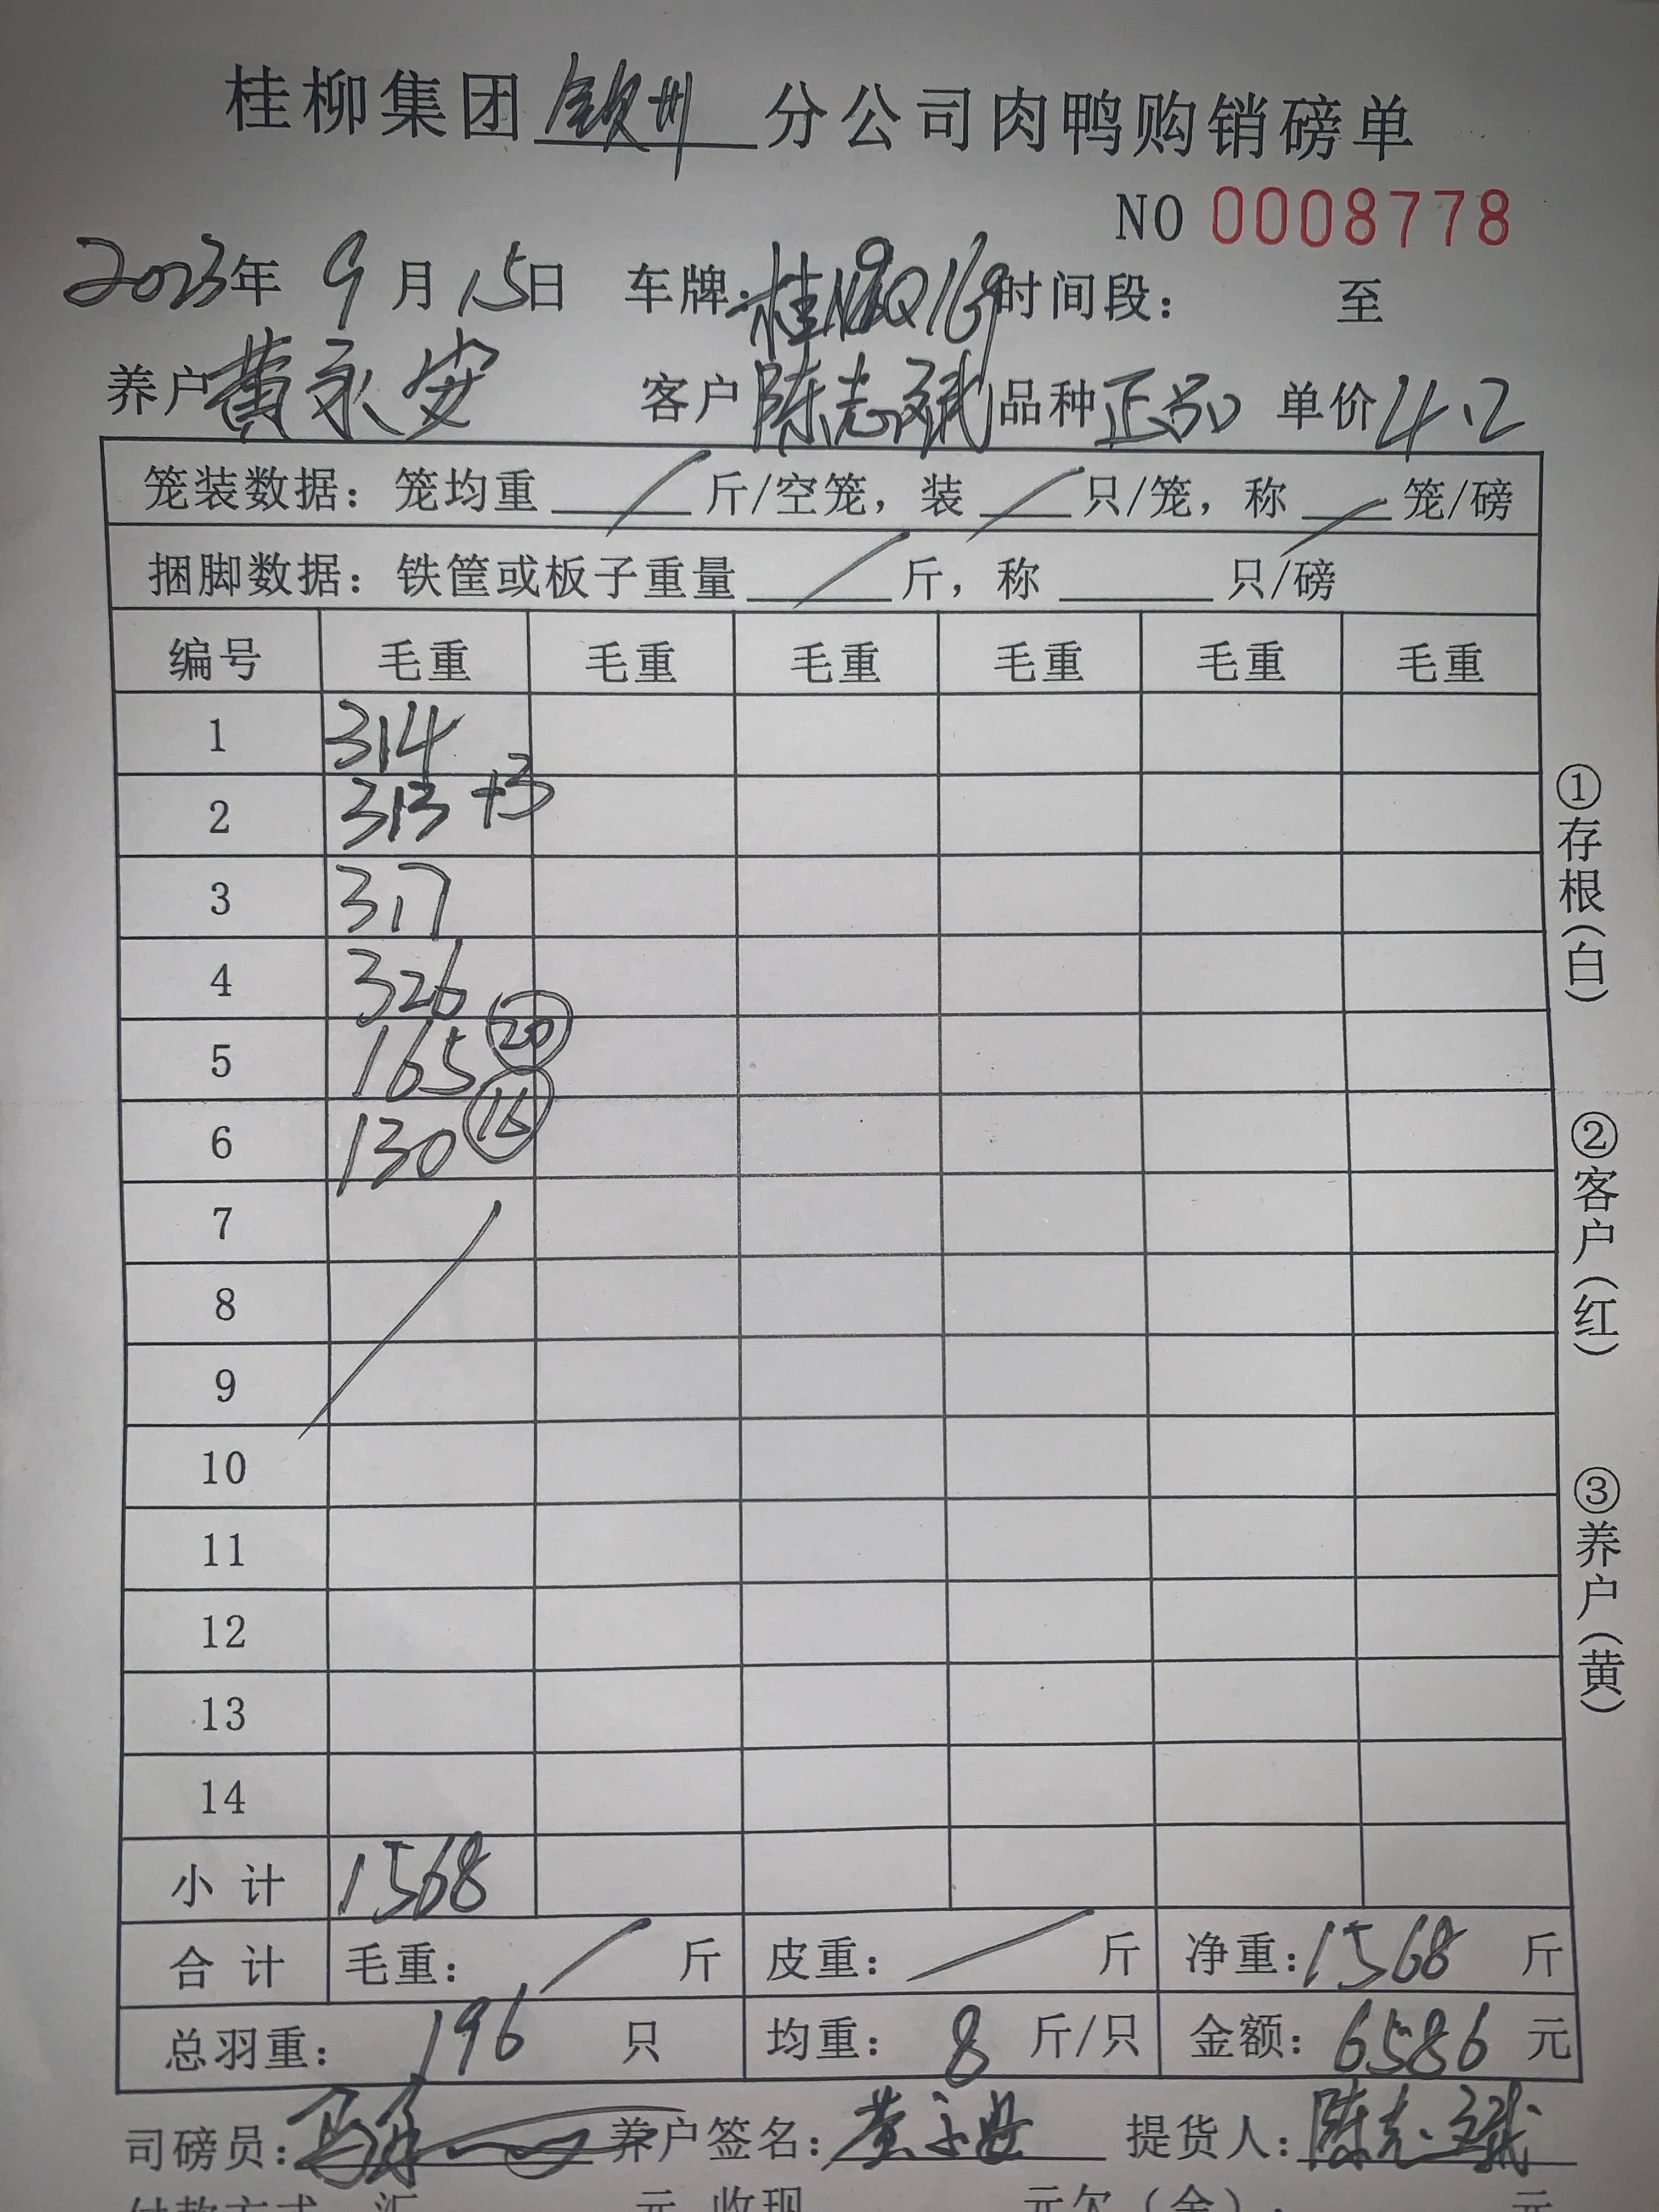 桂柳集团钦州分公司肉鸭购销磅单
NO 0008778
2023年 9月15日 车牌:桂N 时间段: 至
养户 永安 客户 陈志斌 品种 正品 单价 4.2
笼装数据: 笼均重 / 斤/空笼, 装 / 只/笼, 称 / 笼/磅
捆脚数据: 铁筐或板子重量 / 斤, 称 只/磅
编号 毛重 毛重 毛重 毛重 毛重 毛重
1 314
2 313 +3
3 317
4 326
5 165 20
6 130 16
7
8
9
10
11
12
13
14
小计 1568
合计 毛重: / 斤 皮重: / 斤 净重: 1568 斤
总羽重: 196 只 均重: 8 斤/只 金额: 6586 元
司磅员: 养户签名: 提货人: 陈志斌
付款方式 汇 元 收现 元欠(余): 元
①存根(白)
②客户(红)
③养户(黄)